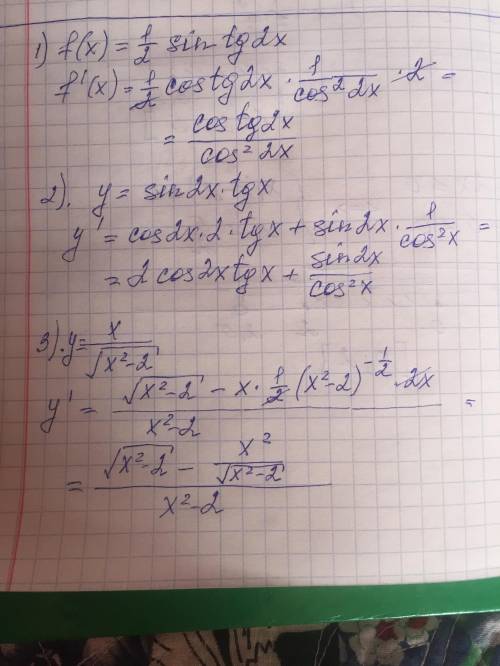 1) f(x) = 1/2 sin tg 2x
f'(x) = 1/2 cos tg 2x · 1/cos² 2x · 2 =
= cos tg 2x / cos² 2x
2). y = sin 2x · tg x
y' = cos 2x · 2 · tg x + sin 2x · 1/cos² x =
= 2 cos 2x tg x + sin 2x / cos² x
3). y = x / √(x²-2)
y' = (√(x²-2) - x · 1/2 (x²-2)^(-1/2) · 2x) / (x²-2) =
= (√(x²-2) - x²/√(x²-2)) / (x²-2)